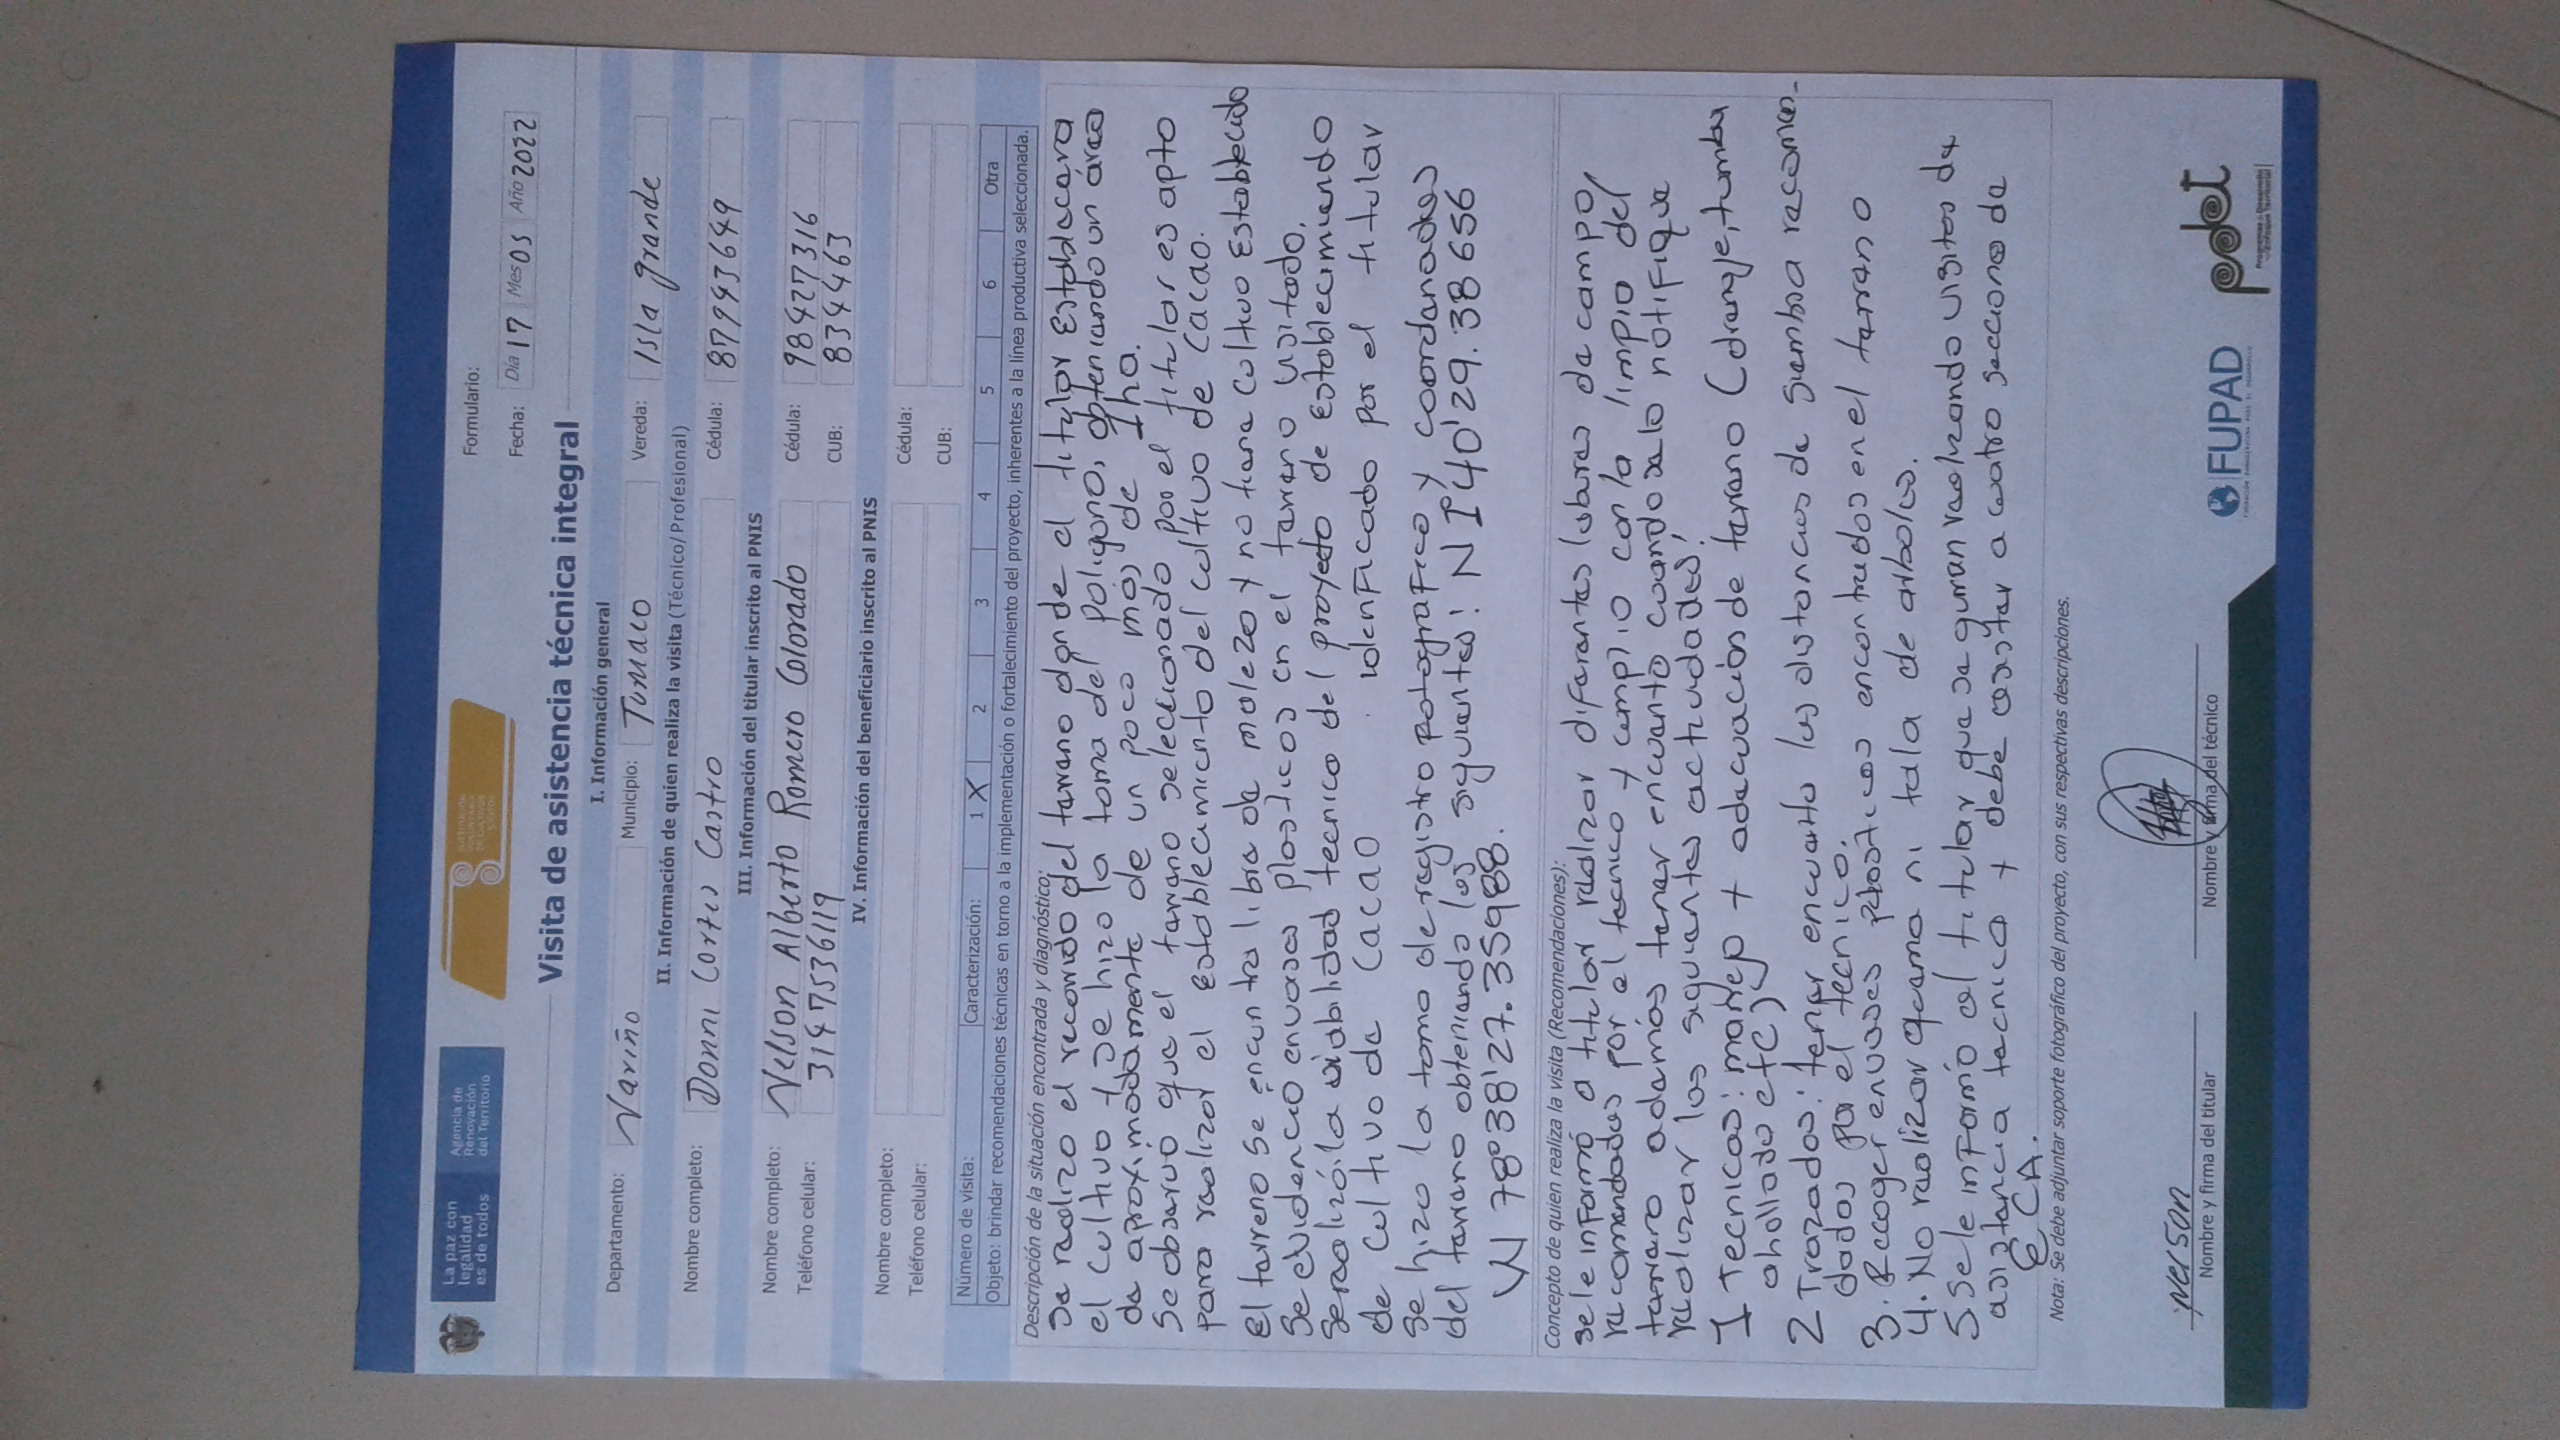 La paz con legalidad es de todos
Agencia de Renovación del Territorio
SUSTITUCIÓN VOLUNTARIA DE CULTIVOS ILÍCITOS
Formulario:
Fecha: Día 17 Mes 05 Año 2022
Visita de asistencia técnica integral
I. Información general
Departamento: Nariño Municipio: Tumaco Vereda: Isla grande
II. Información de quien realiza la visita (Técnico/Profesional)
Nombre completo: Donni Cortes Castro Cédula: 879943649
III. Información del titular inscrito al PNIS
Nombre completo: Nelson Alberto Romero Colorado Cédula: 98427316
Teléfono celular: 3147536119 CUB: 834463
IV. Información del beneficiario inscrito al PNIS
Nombre completo: Cédula:
Teléfono celular: CUB:
Número de visita: Caracterización: 1 X 2 3 4 5 6 Otra
Objeto: brindar recomendaciones técnicas en torno a la implementación o fortalecimiento del proyecto, inherentes a la línea productiva seleccionada.
Descripción de la situación encontrada y diagnóstico:
Se realizo el recorrido del terreno donde el titular establecera
el cultivo y se hizo la toma del poligono, obteniendo un área
de aproximadamente de un poco más de 1 ha.
Se observo que el terreno seleccionado por el titular es apto
para realizar el establecimiento del cultivo de cacao.
El terreno se encuntra libre de maleza y no tiene cultivo establecido
Se evidencio envases plasticos en el terreno visitado.
Se realizó la viabilidad tecnico del proyecto de establecimiendo
de cultivo de cacao identificado por el titular
Se hizo la toma de registro fotografico y coordenadas
del terreno obteniendo las siguientes: N 1°40'29.38656
W 78°38'27.35988.
Concepto de quien realiza la visita (Recomendaciones):
se le informó a titular realizar diferentes labores de campo,
recomendadas por el tecnico y cumplio con la limpia del
terreno ademas tener encuenta cuando se lo notifique
realizar las siguientes actividades:
1 Tecnicas: manejo y adecuación de terreno (drenaje, tumba
ahollado etc)
2 Trazados: tener encuenta las distancias de siembra recomen-
dados por el tecnico.
3. Recoger envases plasticos encontrados en el terreno
4. No realizar quema ni tala de arboles.
5 Se le informó al titular que se guiran realizando visitas de
asistencia tecnica y debe asistir a cuatro secciones de
ECA.
Nota: Se debe adjuntar soporte fotográfico del proyecto, con sus respectivas descripciones.
Nerson
Nombre y firma del titular
Nombre y firma del técnico
FUPAD
FUNDACIÓN PANAMERICANA PARA EL DESARROLLO
pdet
Programas de Desarrollo con Enfoque Territorial